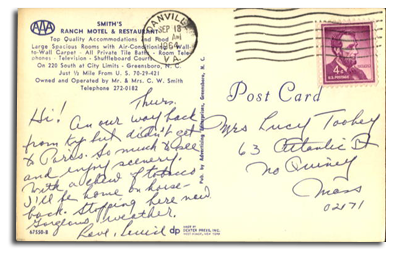 AAA
SMITH'S
RANCH MOTEL & RESTAURANT
Top Quality Accommodations and Food
Large Spacious Rooms with Air-Conditioning - Wall-
to-Wall Carpet - All Private Tile Baths - Room Tele-
phones - Television - Shuffleboard Courts
On 220 South at City Limits - Greensboro, N. C.
Just ½ Mile From U.S. 70-29-421
Owned and Operated by Mr. & Mrs. C. W. Smith
Telephone 272-0182
DANVILLE
SEP 18
AM
1964
VA.
4¢
U.S. POSTAGE
Post Card
Thurs.
Hi! On our way back
from trip but didn't get
to Parks. So much to see
and enjoy scenery.
With a chew of tobacco
I'll be home on horse-
back. Stopping here now
Gorgeous weather.
Love,
Mrs Lucy Toohey
63 Atlantic St
No Quincy
Mass
02171
Pub. by Advertising Enterprises, Greensboro, N. C.
67558-B
dp
MADE BY
DEXTER PRESS, INC.
WEST NYACK, NEW YORK